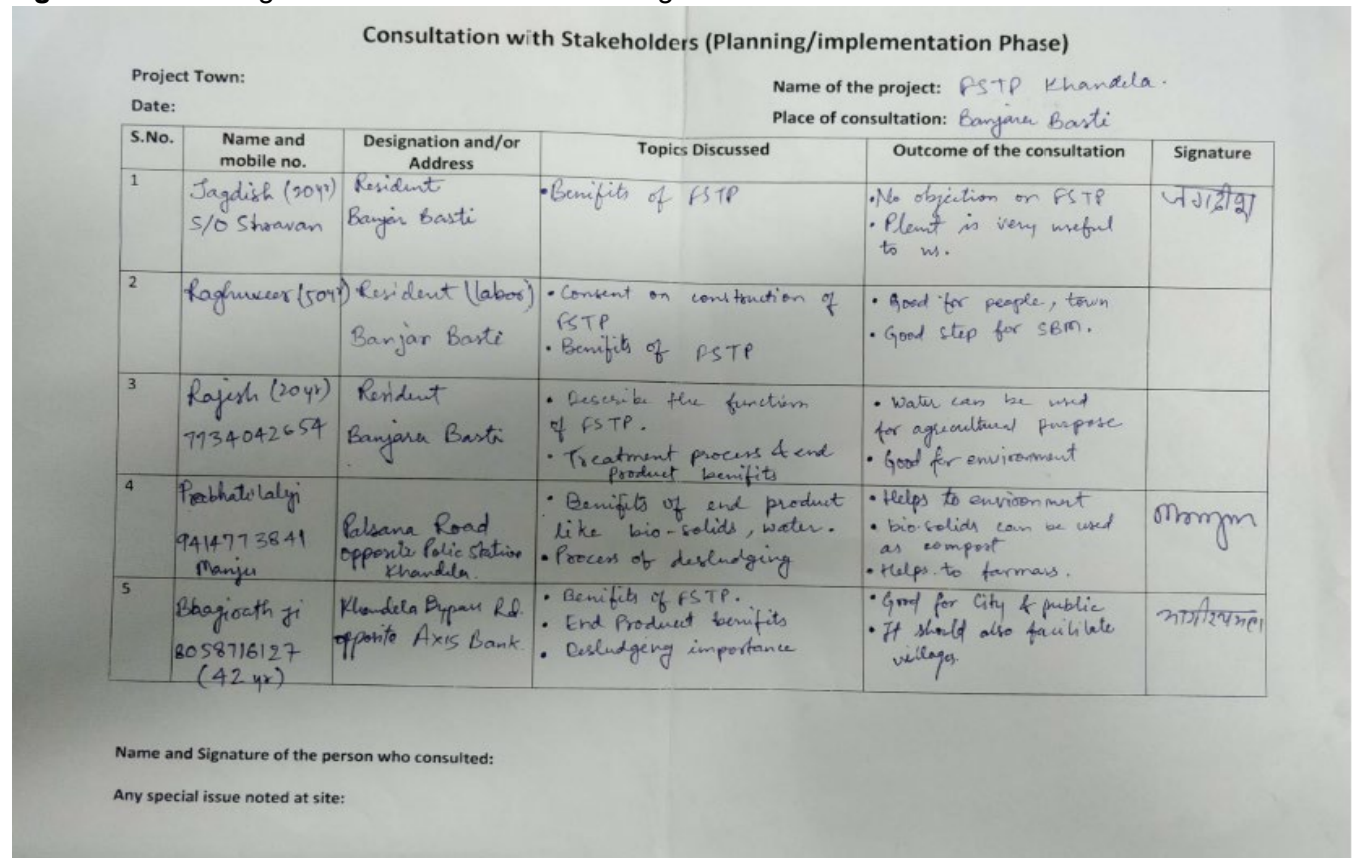 Consultation with Stakeholders (Planning/implementation Phase)
Project Town:
Name of the project: FSTP Khandela.
Date:
Place of consultation: Banjara Basti
S.No.
Name and
mobile no.
Designation and/or
Address
Topics Discussed
Outcome of the consultation
Signature
1
Jagdish (20yr)
S/O Shravan
Resident
Banjar Basti
• Benifits of FSTP
• No objection on FSTP
• Plant is very useful
to us.
जगदीश
2
Raghuveer (50yr)
Resident (labor)
Banjar Basti
• Consent on construction of
FSTP
• Benifits of FSTP
• Good for people, town
• Good step for SBM.
3
Rajesh (20yr)
7734042654
Resident
Banjara Basti
• Describe the function
of FSTP.
• Treatment process & end
Product benifits
• Water can be used
for agricultural purpose
• Good for environment
4
Prabhati Lalji
9414773841
Manju
Palsana Road
opposite Polic Station
Khandela.
• Benifits of end product
like bio-solids, water.
• Process of desludging
• Helps to environment
• bio-solids can be used
as compost
• Helps to farmars.
5
Bhagirath ji
8058716127
(42 yr)
Khandela Bypass Rd.
opposite Axis Bank.
• Benifits of FSTP.
• End Product benifits
• Desludging importance
• Good for City & public
• It should also facilitate
villages.
Name and Signature of the person who consulted:
Any special issue noted at site: